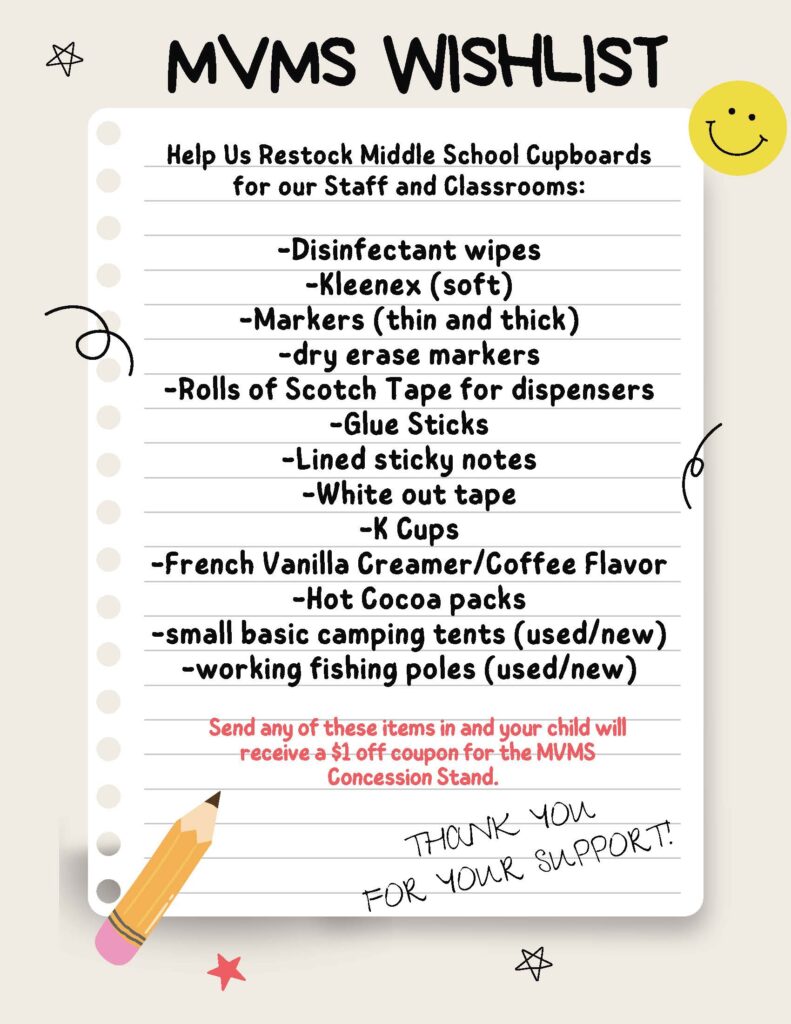 MVMS WISHLIST
Help Us Restock Middle School Cupboards
for our Staff and Classrooms:
-Disinfectant wipes
-Kleenex (soft)
-Markers (thin and thick)
-dry erase markers
-Rolls of Scotch Tape for dispensers
-Glue Sticks
-Lined sticky notes
-White out tape
-K Cups
-French Vanilla Creamer/Coffee Flavor
-Hot Cocoa packs
-small basic camping tents (used/new)
-working fishing poles (used/new)
Send any of these items in and your child will
receive a $1 off coupon for the MVMS
Concession Stand.
THANK YOU
FOR YOUR SUPPORT!